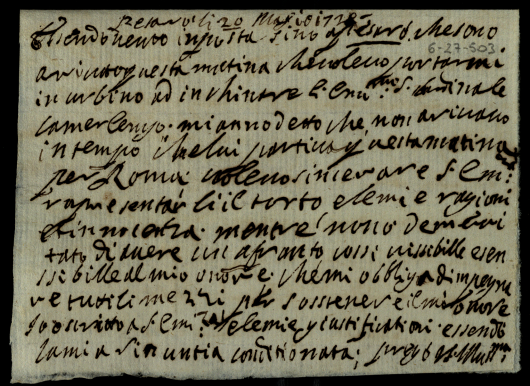 Pesaro li 20 Marzo 17
Essendo venuto in posta sino a Pesaro, che sono
6-27-S03
arivato questa matina che volevo portarmi
in urbino ad inchinare l'Em.mo S. Cardinale
Camerlengo. mi anno detto che, non arivavo
in tempo che lui partiva questa matina
per Roma: volevo sincerare S. Em.
rapresentarli il torto e le mie ragioni
et innocenza. mentre non o demeri
tato di avere un afronto cossi vissibille e sen
ssibille al mio onore. che mi obbliga d'impegna
re tuti li mezzi per sostenere il mio onore
o scritto a S. Em.a e le mie giustificationi essendo
la mia rinuntia conditionata; prego